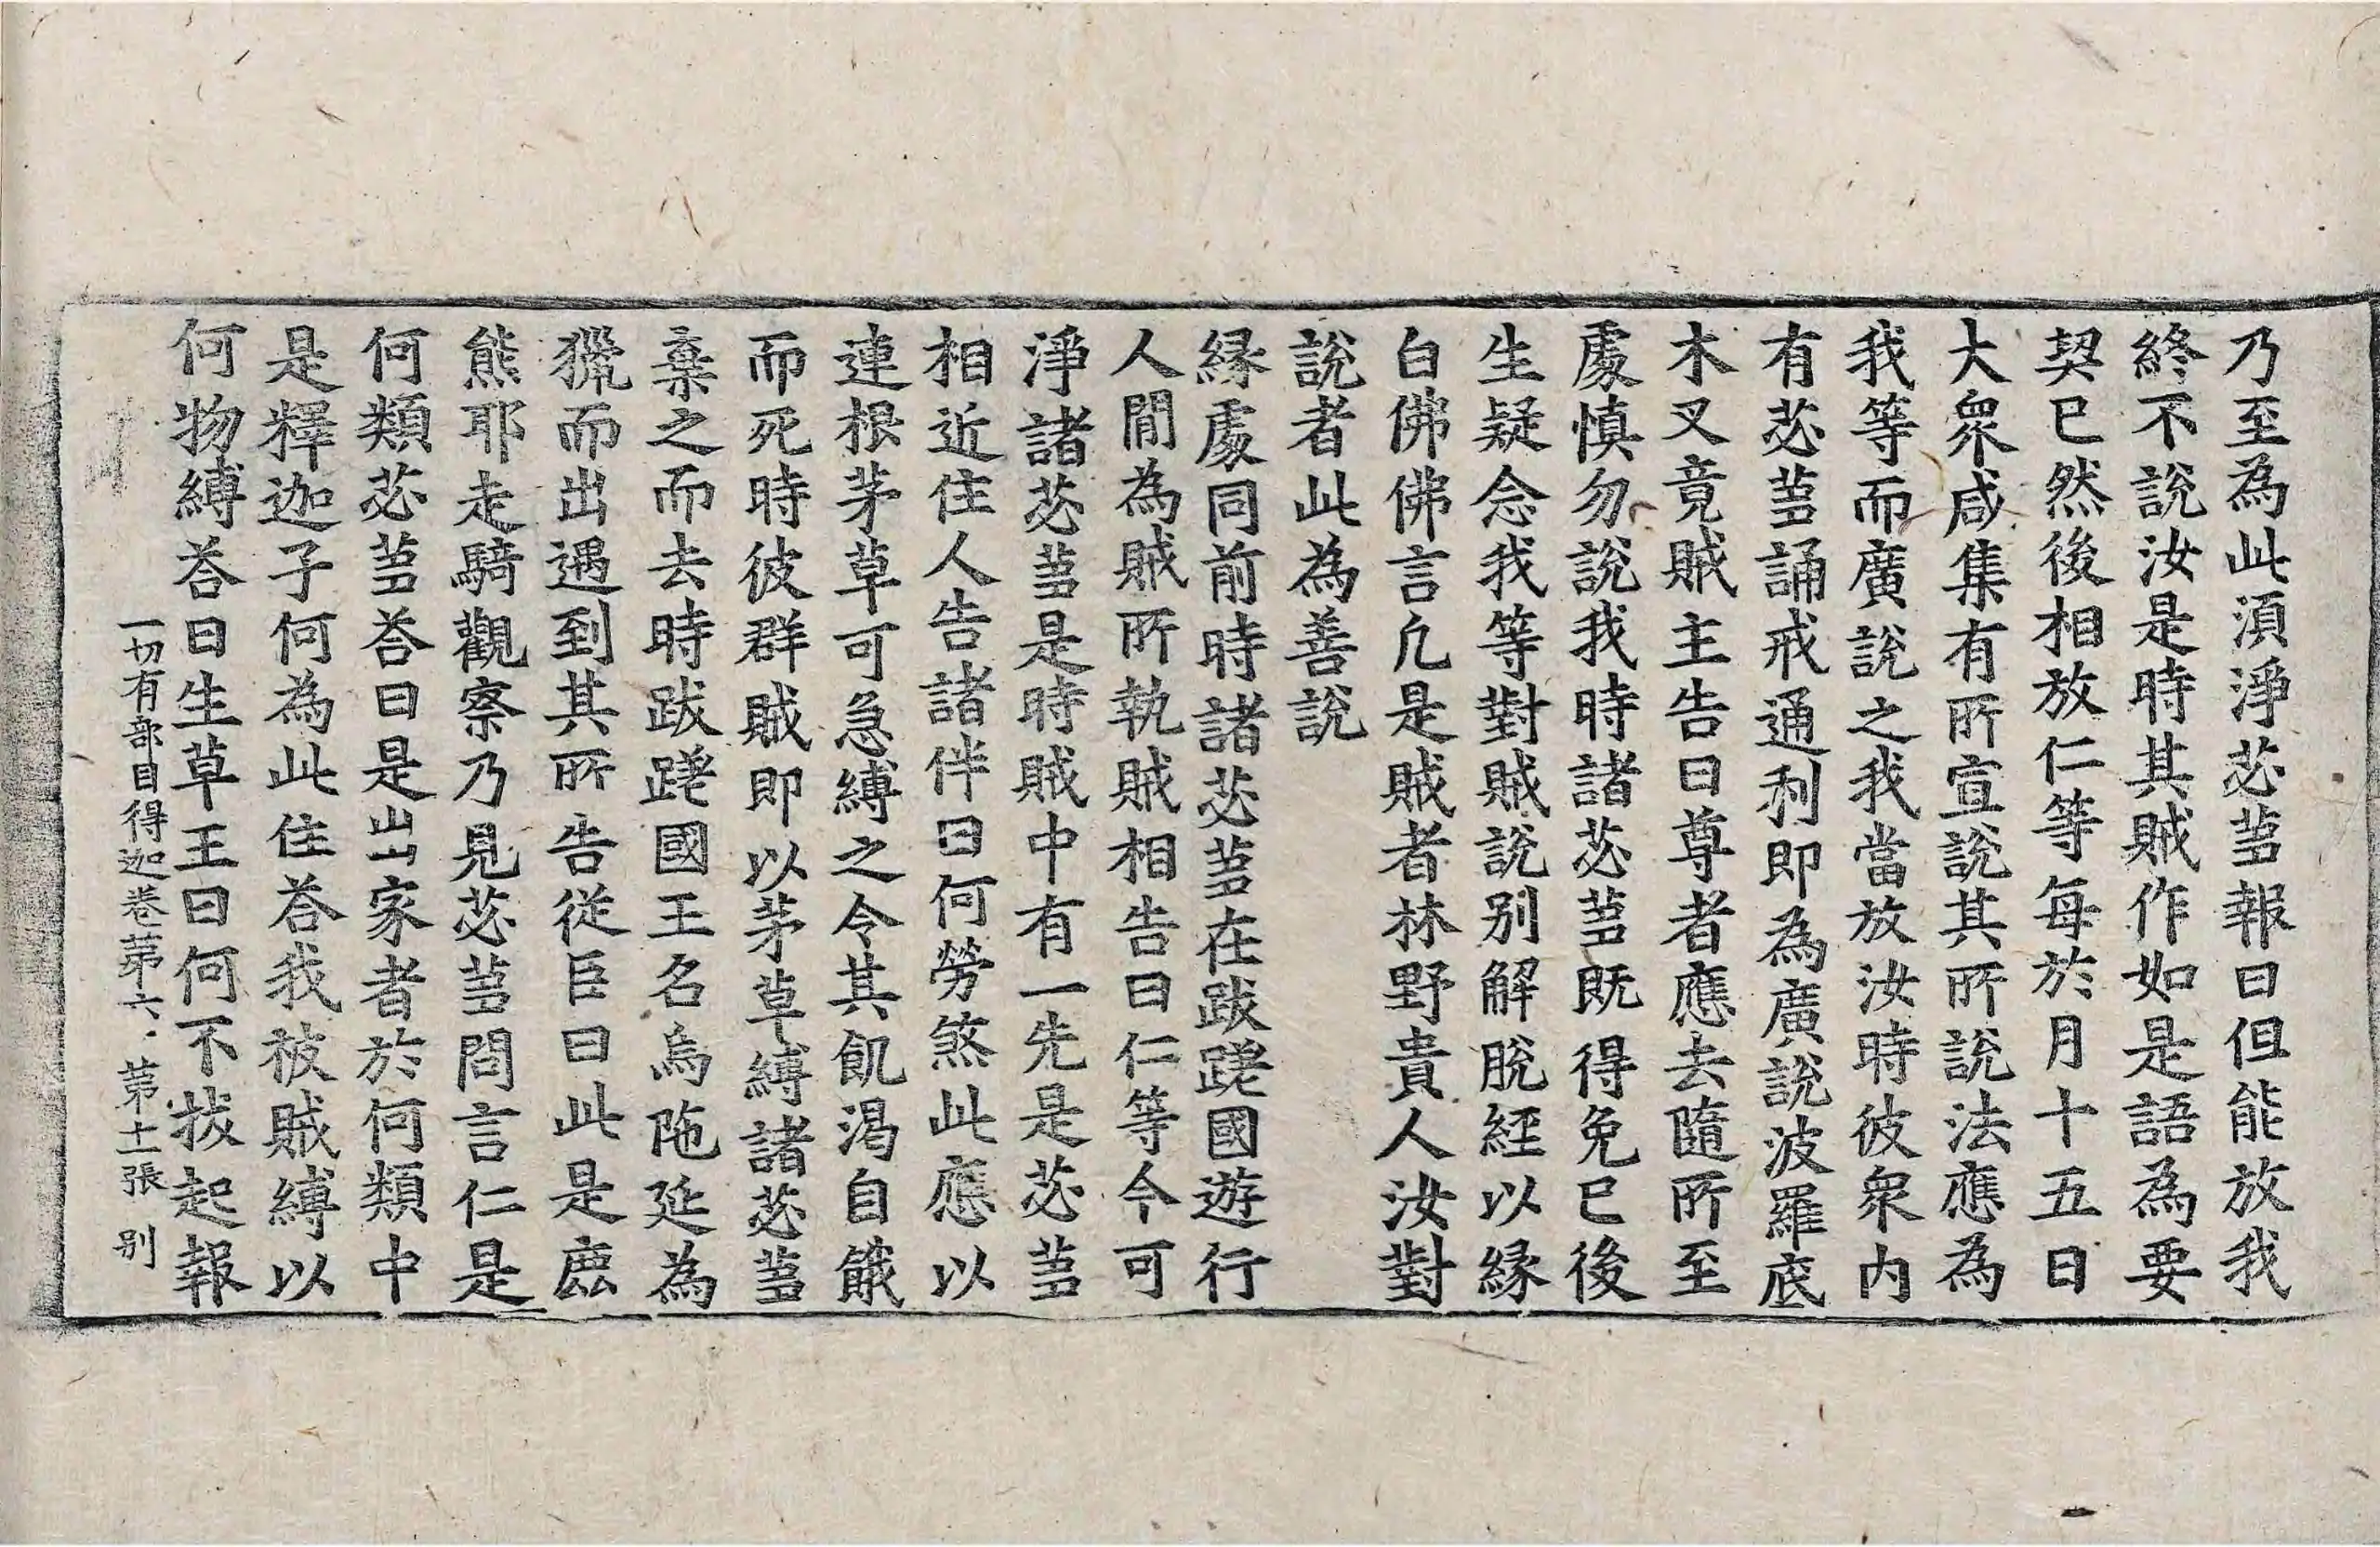 乃至為此湏淨苾蒭報曰但能放我
終不說汝是時其賊作如是語為要
契已然後相放仁等每於月十五日
大衆咸集有所宣說其所說法應為
我等而廣說之我當放汝時彼衆內
有苾蒭誦戒通利即為廣說波羅底
木叉竟賊主告曰尊者應去隨所至
處慎勿說我時諸苾蒭既得免已後
生疑念我等對賊說别解脫經以縁
白佛佛言凡是賊者林野貴人汝對
說者此為善說
縁處同前時諸苾蒭在跋蹉國遊行
人閒為賊所執賊相告曰仁等今可
淨諸苾蒭是時賊中有一先是苾蒭
相近住人告諸伴曰何勞煞此應以
連根茅草可急縛之令其飢渴自餓
而死時彼群賊即以茅草縛諸苾蒭
棄之而去時跋蹉國王名烏陁延為
獵而出遇到其所告從臣曰此是麁
熊耶走騎觀察乃見苾蒭問言仁是
何類苾蒭荅曰是出家者於何類中
是釋迦子何為此住荅我被賊縛以
何物縛荅曰生草王曰何不拔起報
一切有部目得迦卷苐六 苐十一張 别